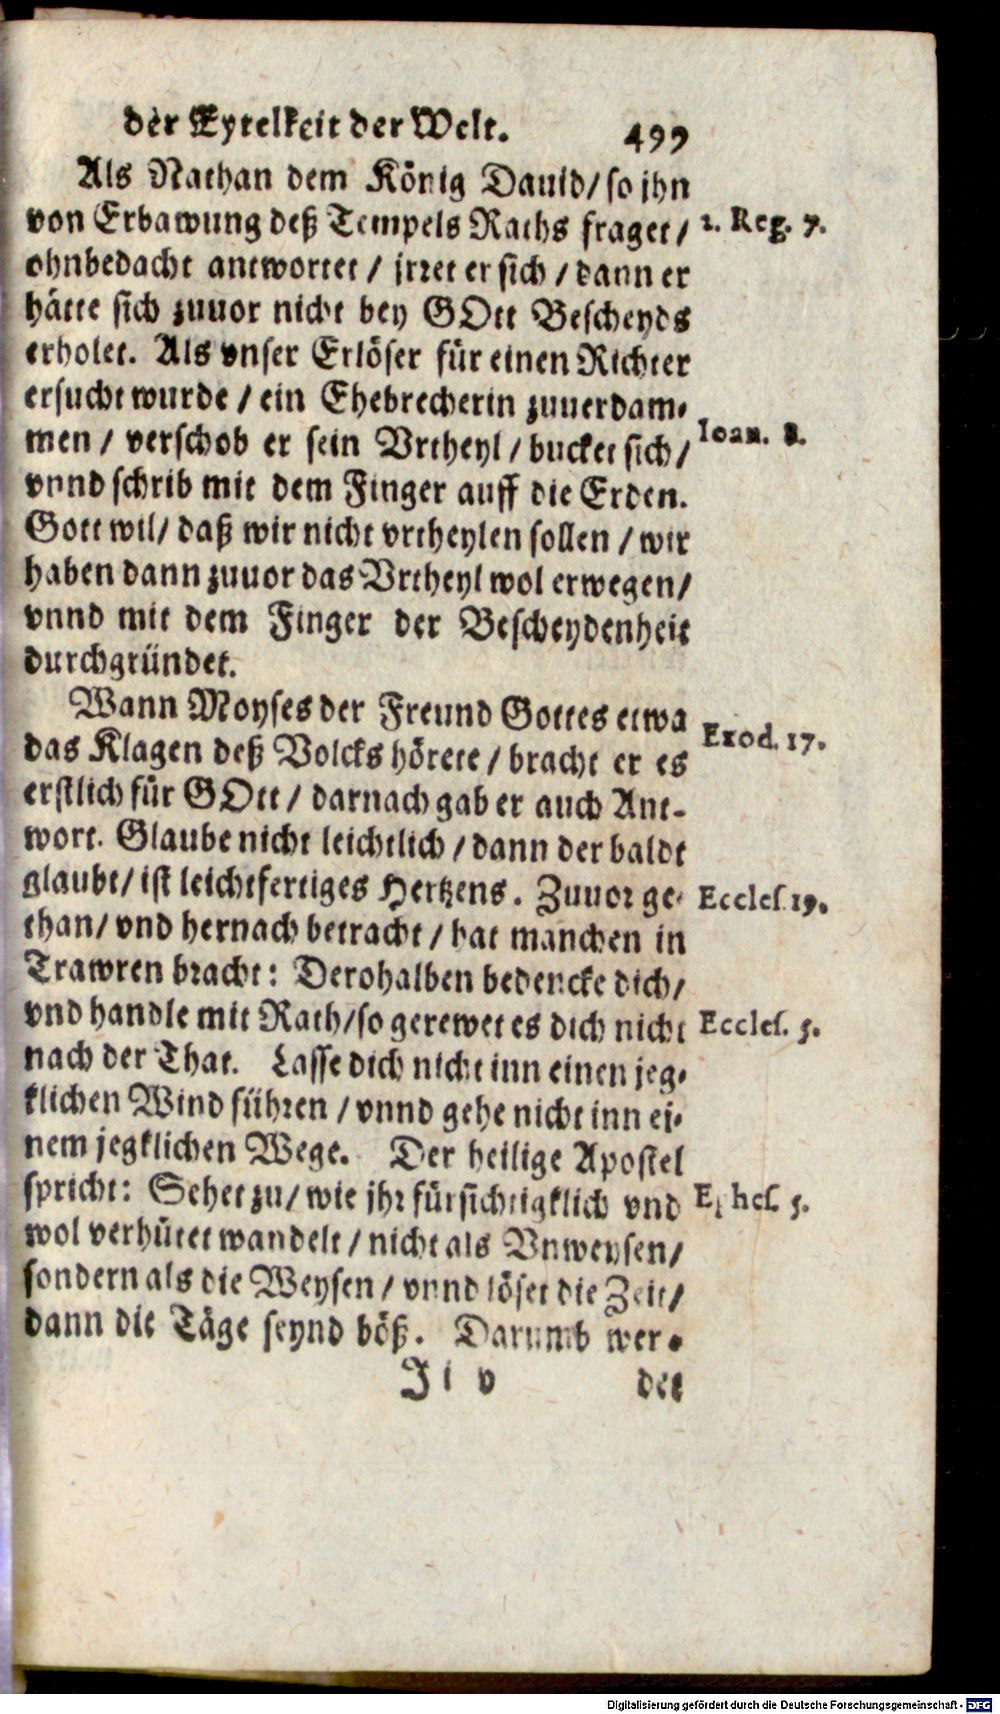 der Eytelkeit der Welt. 499
Als Nathan dem König Dauid/ so jhn
von Erbawung deß Tempels Raths fraget/ 2. Reg. 7.
ohnbedacht antwortet / jrret er sich / dann er
hätte sich zuuor nicht bey GOtt Bescheyds
erholet. Als vnser Erlöser für einen Richter
ersucht wurde / ein Ehebrecherin zuuerdam-
men / verschob er sein Vrtheyl / bucket sich/ Ioan. 8.
vnnd schrib mit dem Finger auff die Erden.
Gott wil/ daß wir nicht vrtheylen sollen / wir
haben dann zuuor das Vrtheyl wol erwegen/
vnnd mit dem Finger der Bescheydenheit
durchgründet.
Wann Moyses der Freund Gottes etwa
das Klagen deß Volcks hörete / bracht er es Exod. 17.
erstlich für GOtt / darnach gab er auch Ant-
wort. Glaube nicht leichtlich / dann der baldt
glaubt/ ist leichtfertiges Hertzens. Zuuor ge- Eccles. 19.
than/ vnd hernach betracht / hat manchen in
Trawren bracht: Derohalben bedencke dich/
vnd handle mit Rath/ so gerewet es dich nicht Eccles. 5.
nach der That. Lasse dich nicht inn einen jeg-
klichen Wind führen / vnnd gehe nicht inn ei-
nem jegklichen Wege. Der heilige Apostel
spricht: Sehet zu/ wie jhr fürsichtigklich vnd Ephes. 5.
wol verhütet wandelt / nicht als Vnweysen/
sondern als die Weysen / vnnd löset die Zeit/
dann die Täge seynd böß. Darumb wer-
Ji v det
Digitalisierung gefördert durch die Deutsche Forschungsgemeinschaft - DFG